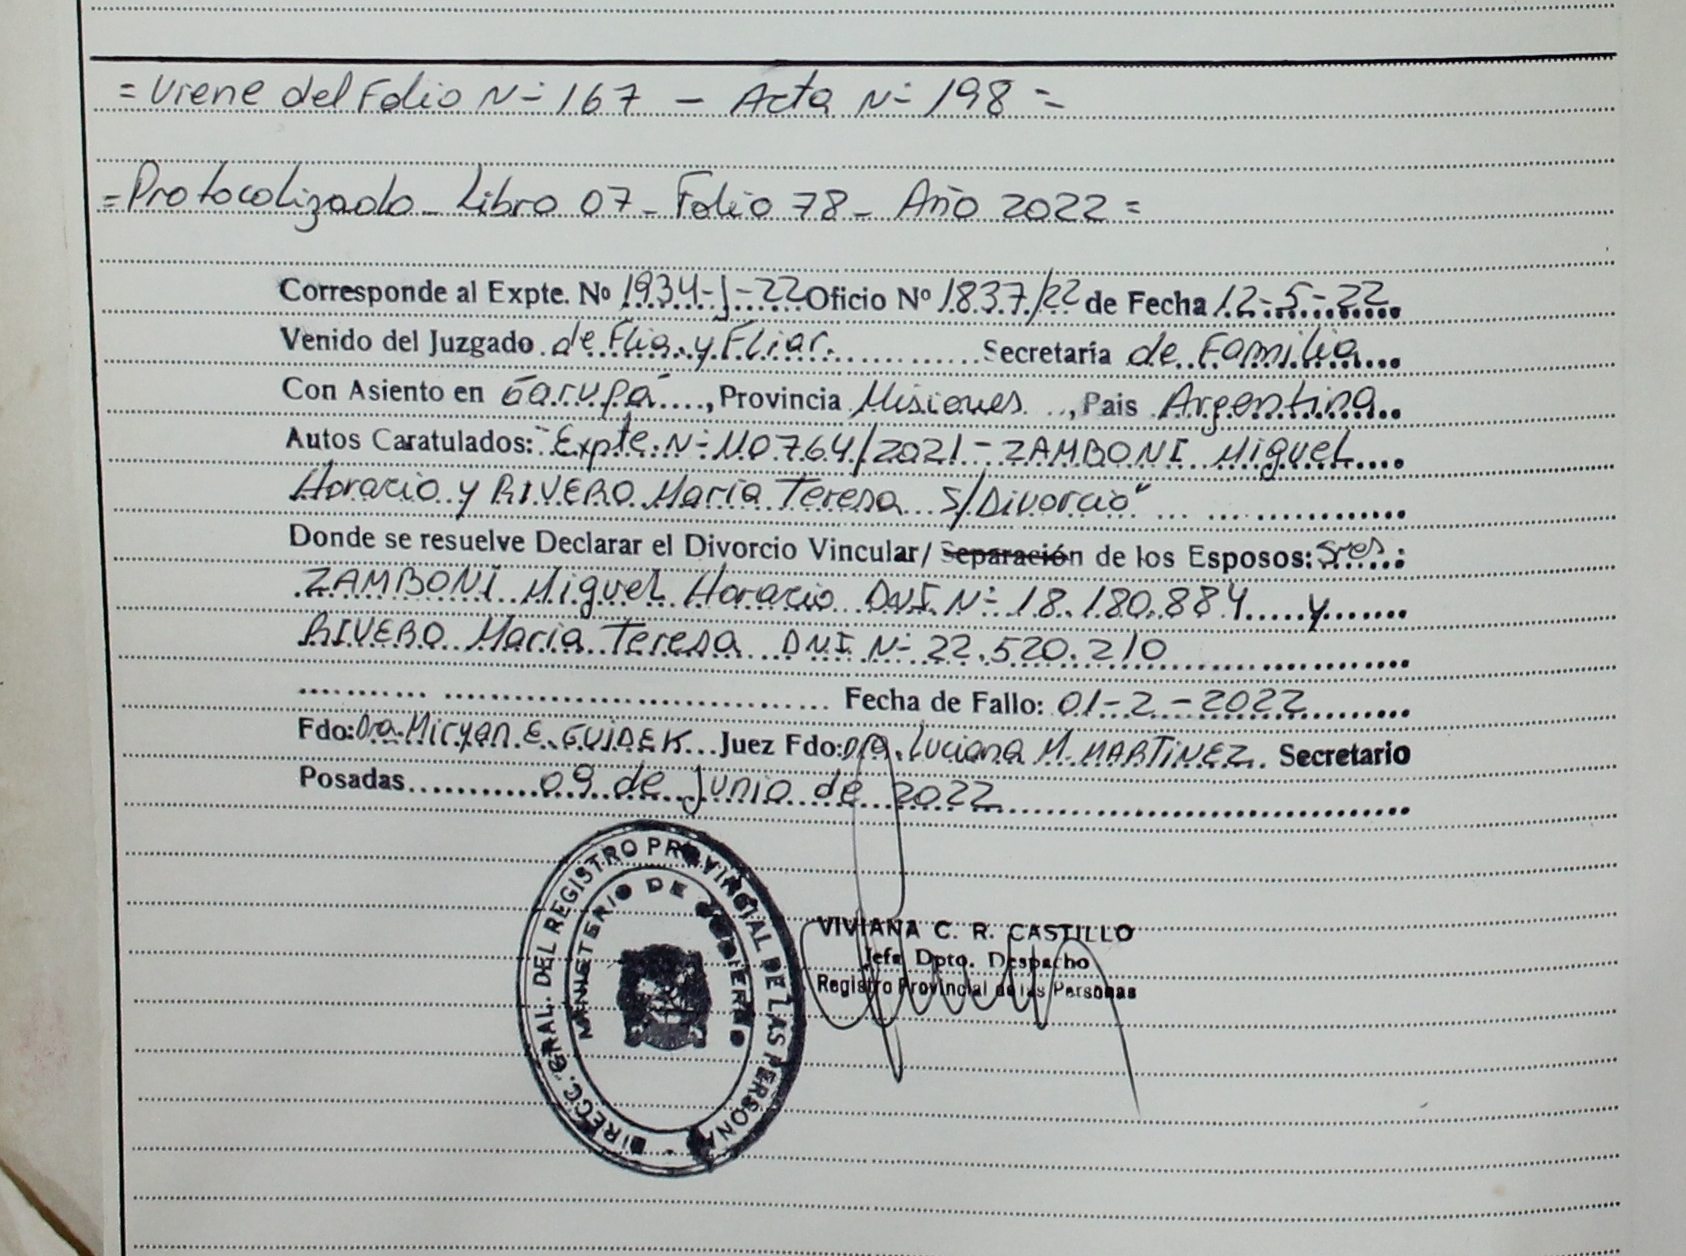 = Viene del Folio N- 167 - Acta N- 198 =
= Protocolizado - Libro 07 - Folio 78 - Año 2022 =
Corresponde al Expte. Nº 1934-J-22 Oficio Nº 1837/22 de Fecha 12-5-22
Venido del Juzgado de Flia. y Fliar. Secretaría de Familia
Con Asiento en Garupá, Provincia Misiones, Pais Argentina
Autos Caratulados: "Expte. N- 110764/2021 - ZAMBONI Miguel
Horacio y RIVERO María Teresa S/Divorcio"
Donde se resuelve Declarar el Divorcio Vincular/ Separación de los Esposos: Sres.:
ZAMBONI Miguel Horacio DNI. N- 18.180.884 y
RIVERO María Teresa DNI N- 22.520.210
Fecha de Fallo: 01-2-2022
Fdo: Dra. Miryan E. GUIDEK Juez Fdo: Dra. Luciana M. MARTiNEZ. Secretario
Posadas 09 de Junio de 2022
DIRECC. GRAL. DEL REGISTRO PROVINCIAL DE LAS PERSONAS
MINISTERIO DE GOBIERNO
VIVIANA C. R. CASTILLO
Jefe Dpto. Despacho
Registro Provincial de las Personas